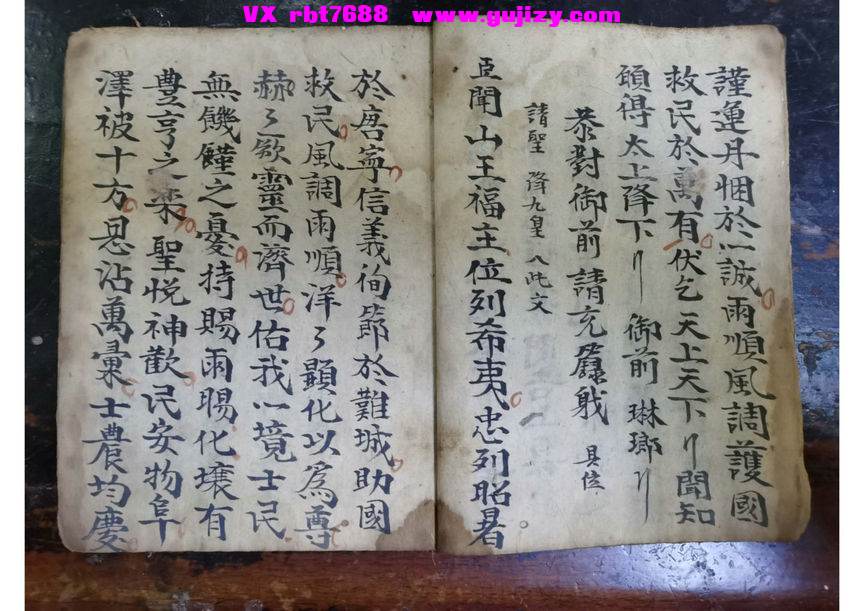 VX rbt7688 www.gujizy.com
謹運丹悃於一誠雨順風調護國
救民於萬有伏乞天上天下〢聞知
頋得太上降下〢御前琳瑯〢
恭對御前請充籙戝 具位
請聖 降九皇 入此文
臣聞山王福主位列希夷忠列昭著
於唐寧信義徇節於難城助國
救民風調雨順洋々顕化以為尊
赫々欽靈而濟世佑我一境士民
無饑饉之憂持賜雨賜化壤有
豊亨之楽聖悦神歡民安物阜
澤被十方恩沾萬彙士農均慶